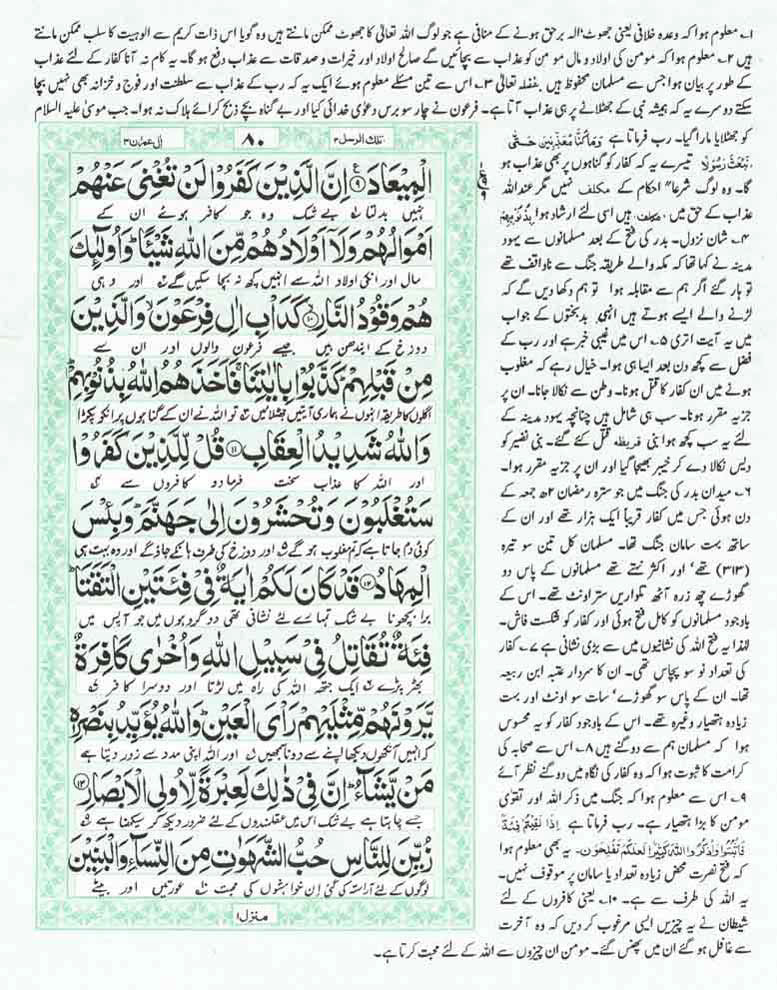 ۱۔ معلوم ہوا کہ وعدہ خلافی یعنی جھوٹ' الہ برحق ہونے کے منافی ہے جو لوگ اللہ تعالیٰ کا جھوٹ ممکن مانتے ہیں وہ گویا اس ذات کریم سے الوہیت کا سلب ممکن مانتے
ہیں ۲۔ معلوم ہوا کہ مومن کی اولاد و مال مومن کو عذاب سے بچائیں گے صالح اولاد اور خیرات و صدقات سے عذاب دفع ہو گا۔ یہ کام نہ آنا کفار کے لئے عذاب
کے طور پر بیان ہوا جس سے مسلمان محفوظ ہیں بفضلہ تعالیٰ ۳۔ اس سے تین مسئلے معلوم ہوئے ایک یہ کہ رب کے عذاب سے سلطنت اور فوج و خزانہ بھی نہیں بچا
سکتے دوسرے یہ کہ ہمیشہ نبی کے جھٹلانے پر ہی عذاب آتا ہے۔ فرعون نے چار سو برس دعوٰی خدائی کیا اور بے گناہ بچے ذبح کرائے ہلاک نہ ہوا۔ جب موسیٰ علیہ السلام
کو جھٹلایا مارا گیا۔ رب فرماتا ہے وَمَا كُنَّا مُعَذِّبِيْنَ حَتّٰى
نَبْعَثَ رَسُوْلًا تیسرے یہ کہ کفار کو گناہوں پر بھی عذاب ہو
گا۔ وہ لوگ شرعا" احکام کے مکلف نہیں مگر عنداللہ
عذاب کے حق میں مکلف ہیں اسی لئے ارشاد ہوا بِذُنُوْبِهِمْ
۴۔ شان نزول۔ بدر کی فتح کے بعد مسلمانوں سے یہود
مدینہ نے کہا تھا کہ مکہ والے طریقہ جنگ سے ناواقف تھے
تو ہار گئے اگر ہم سے مقابلہ ہوا تو ہم دکھا دیں گے کہ
لڑنے والے ایسے ہوتے ہیں انہی بدبختوں کے جواب
میں یہ آیت اتری ۵۔ اس میں غیبی خبر ہے اور رب کے
فضل سے کچھ دن بعد ایسا ہی ہوا۔ خیال رہے کہ مغلوب
ہونے میں ان کفار کا قتل ہونا۔ وطن سے نکالا جانا۔ ان پر
جزیہ مقرر ہونا۔ سب ہی شامل ہیں چنانچہ یہود مدینہ کے
لئے یہ سب کچھ ہوا بنی قریظہ قتل کئے گئے۔ بنی نضیر کو
دیس نکالا دے کر خیبر بھیجا گیا اور ان پر جزیہ مقرر ہوا۔
۶۔ میدان بدر کی جنگ میں جو سترہ رمضان ۲ھ جمعہ کے
دن ہوئی جس میں کفار قریباً ایک ہزار تھے اور ان کے
ساتھ بہت سامان جنگ تھا۔ مسلمان کل تین سو تیرہ
(۳۱۳) تھے' اور اکثر نہتے تھے مسلمانوں کے پاس دو
گھوڑے چھ زرہ آٹھ تلواریں ستر اونٹ تھے۔ اس کے
باوجود مسلمانوں کو کامل فتح ہوئی اور کفار کو شکست فاش۔
لہذا یہ فتح اللہ کی نشانیوں میں سے بڑی نشانی ہے ۷۔ کفار
کی تعداد نو سو پچاس تھی۔ ان کا سردار عتبہ ابن ربیعہ
تھا۔ ان کے پاس سو گھوڑے' سات سو اونٹ اور بہت
زیادہ ہتھیار وغیرہ تھے۔ اس کے باوجود کفار کو یہ محسوس
ہوا کہ مسلمان ہم سے دوگنے ہیں ۸۔ اس سے صحابہ کی
کرامت کا ثبوت ہوا کہ وہ کفار کی نگاہ میں دوگنے نظر آئے
۹۔ اس سے معلوم ہوا کہ جنگ میں ذکر اللہ اور تقوٰی
مومن کا بڑا ہتھیار ہے۔ رب فرماتا ہے اِذَا لَقِيْتُمْ فِئَةً
فَاثْبُتُوْا وَاذْكُرُوا اللّٰهَ كَثِيْرًا لَّعَلَّكُمْ تُفْلِحُوْنَ۔ یہ بھی معلوم ہوا
کہ فتح نصرت محض زیادہ تعداد یا سامان پر موقوف نہیں۔
یہ اللہ کی طرف سے ہے۔ ۱۰۔ یعنی کافروں کے لئے
شیطان نے یہ چیزیں ایسی مرغوب کر دیں کہ وہ آخرت
سے غافل ہو گئے ان میں پھنس گئے۔ مومن ان چیزوں سے اللہ کے لئے محبت کرتا ہے۔
اٰل عمرٰن ۳ ۸۰ تلك الرسل ۳
الْمِيْعَادَ ۹ اِنَّ الَّذِيْنَ كَفَرُوْا لَنْ تُغْنِيَ عَنْهُمْ
نہیں بدلتا بے شک وہ جو کافر ہوئے ان کے
اَمْوَالُهُمْ وَلَآ اَوْلَادُهُمْ مِّنَ اللّٰهِ شَيْئًا وَاُولٰٓئِكَ
مال اور انکی اولاد اللہ سے انہیں کچھ نہ بچا سکیں گے اور وہی
هُمْ وَقُوْدُ النَّارِ ۱۰ كَدَاْبِ اٰلِ فِرْعَوْنَ وَالَّذِيْنَ
دوزخ کے ایندھن ہیں جیسے فرعون والوں اور ان سے
مِنْ قَبْلِهِمْ كَذَّبُوْا بِاٰيٰتِنَا فَاَخَذَهُمُ اللّٰهُ بِذُنُوْبِهِمْ
اگلوں کا طریقہ انہوں نے ہماری آیتیں جھٹلائیں تو اللہ نے ان کے گناہوں پر انکو پکڑا
وَاللّٰهُ شَدِيْدُ الْعِقَابِ ۱۱ قُلْ لِّلَّذِيْنَ كَفَرُوْا
اور اللہ کا عذاب سخت فرما دو کافروں سے
سَتُغْلَبُوْنَ وَتُحْشَرُوْنَ اِلٰى جَهَنَّمَ وَبِئْسَ
کوئی دم جاتا ہے کہ تم مغلوب ہو گے اور دوزخ کی طرف ہانکے جاؤ گے اور وہ بہت ہی
الْمِهَادُ ۱۲ قَدْ كَانَ لَكُمْ اٰيَةٌ فِيْ فِئَتَيْنِ الْتَقَتَا
برا بچھونا بے شک تمہارے لئے نشانی تھی دو گروہوں میں جو آپس میں
فِئَةٌ تُقَاتِلُ فِيْ سَبِيْلِ اللّٰهِ وَاُخْرٰى كَافِرَةٌ
بھڑ پڑے ایک جتھہ اللہ کی راہ میں لڑتا اور دوسرا کافر
يَّرَوْنَهُمْ مِّثْلَيْهِمْ رَاْيَ الْعَيْنِ وَاللّٰهُ يُؤَيِّدُ بِنَصْرِهٖ
کہ انہیں آنکھوں دیکھا اپنے سے دونا سمجھیں اور اللہ اپنی مدد سے زور دیتا ہے
مَنْ يَّشَآءُ اِنَّ فِيْ ذٰلِكَ لَعِبْرَةً لِّاُولِي الْاَبْصَارِ ۱۳
جسے چاہتا ہے بے شک اس میں عقلمندوں کے لئے ضرور دیکھ کر سیکھنا ہے
زُيِّنَ لِلنَّاسِ حُبُّ الشَّهَوٰتِ مِنَ النِّسَآءِ وَالْبَنِيْنَ
لوگوں کے لئے آراستہ کی گئی ان خواہشوں کی محبت عورتیں اور بیٹے
منزل ۱